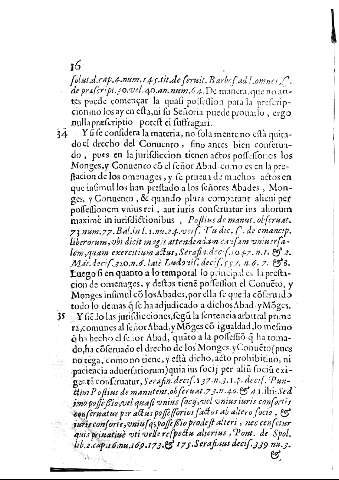 16
solus.d.cap.4.num.145.tit.de seruit. Barb.
de prescript.30.vel.40.an.num.64. De manera, que no an-
tes puede començar la quasi possession para la prescrip-
cion no los ay en esta, ni su Señoria puede prouarlo, ergo
nulla præscriptio potest ei suffragari.
34 Y si se considera la materia, no sola mente no està quita-
do el drecho del Conuento, sino antes bien conserua-
do, pues en la jurisdiccion tienen actos possessorios los
Monges, y Conuento cõ el señor Abad como es en la pre-
stacion de los omenages, y se prueua de muchos actos en
que insimul los han prestado a los señores Abades, Mon-
ges, y Conuento, & quando plura comparant alieni per
possessionem vnius rei, aut iuris conseruatur ius aliorum
maximè in iurisdictionibus, Postius de manut. obseruat.
73.num.77. Bal. in l.1.nu.24.vers. Tu dic. C. de emancip.
liberorum, vbi dicit magis attendendam causam vniuersa-
lem, quam exercitium actus, Serafin. decis.1047.n.1. & 2.
Mar. decis.310.n.6. latè Ludouis. decis.551. n.6. 7. & 8.
Luego si en quanto a lo temporal lo principal es la presta-
cion de omenages, y destos tienē possession el Conuēto, y
Monges insimul cō los Abades, por ella se que la cōseruado
todo lo demas q̃ se ha adjudicado a dichos Abad, y Mōges.
35 Y si de las jurisdicciones, segũ la sentencia arbitral prime
ra, comunes al señor Abad, y Mōges cō igualdad, lo mesmo
q̃ ha hecho el señor Abad, quāto a la possessiō q̃ ha toma-
do, ha cōseruado el drecho de los Monges, y Conuēto (pues
no tega, como no tiene, y està dicho, acto prohibitiuo, ni
paciencia aduersariorum) quia ius socij per aliũ sociũ exi-
gētē conseruatur, Serafin. decis.137.n.3.1.p. decis. Pun-
ctio Postius de manutent. obseruat.73.n.40. & 41. ibi: Sed
imo possessio, vel quasi vnius socij, vel vnius iuris consortis
conseruatur per actus possessorios factos ab altero socio, &
iuris consorte, vniusq; possessio prodest alteri, nec censetur
quis priuatiuè vti velle respectu alterius, Pont. de Spol.
lib.2.cap.16.nu.169.173. & 175. Serafinus decis.339.nu.3.
&